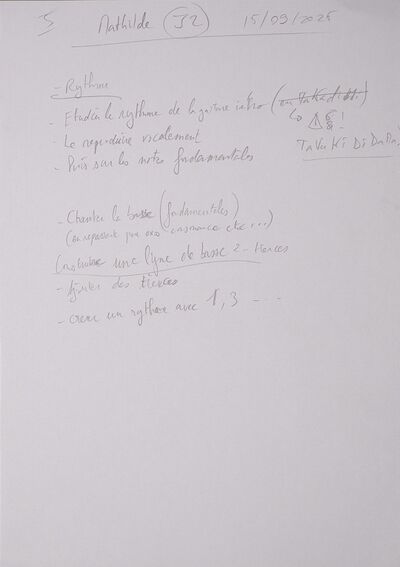 Mathilde (J2) 15/09/2025
- Rythme
- Etudier le rythme de la guitare intro (en Takadimi)
6/8 !
- Le reproduire vocalement
TaVaKiDiDaMa
- Puis sur les notes fondamentales
- Chanter la basse (fondamentales)
(en repassant par exos consonance etc ...)
Construire une ligne de basse 2 - tierces
- Ajouter des tierces
- créer un rythme avec 1, 3 - - -